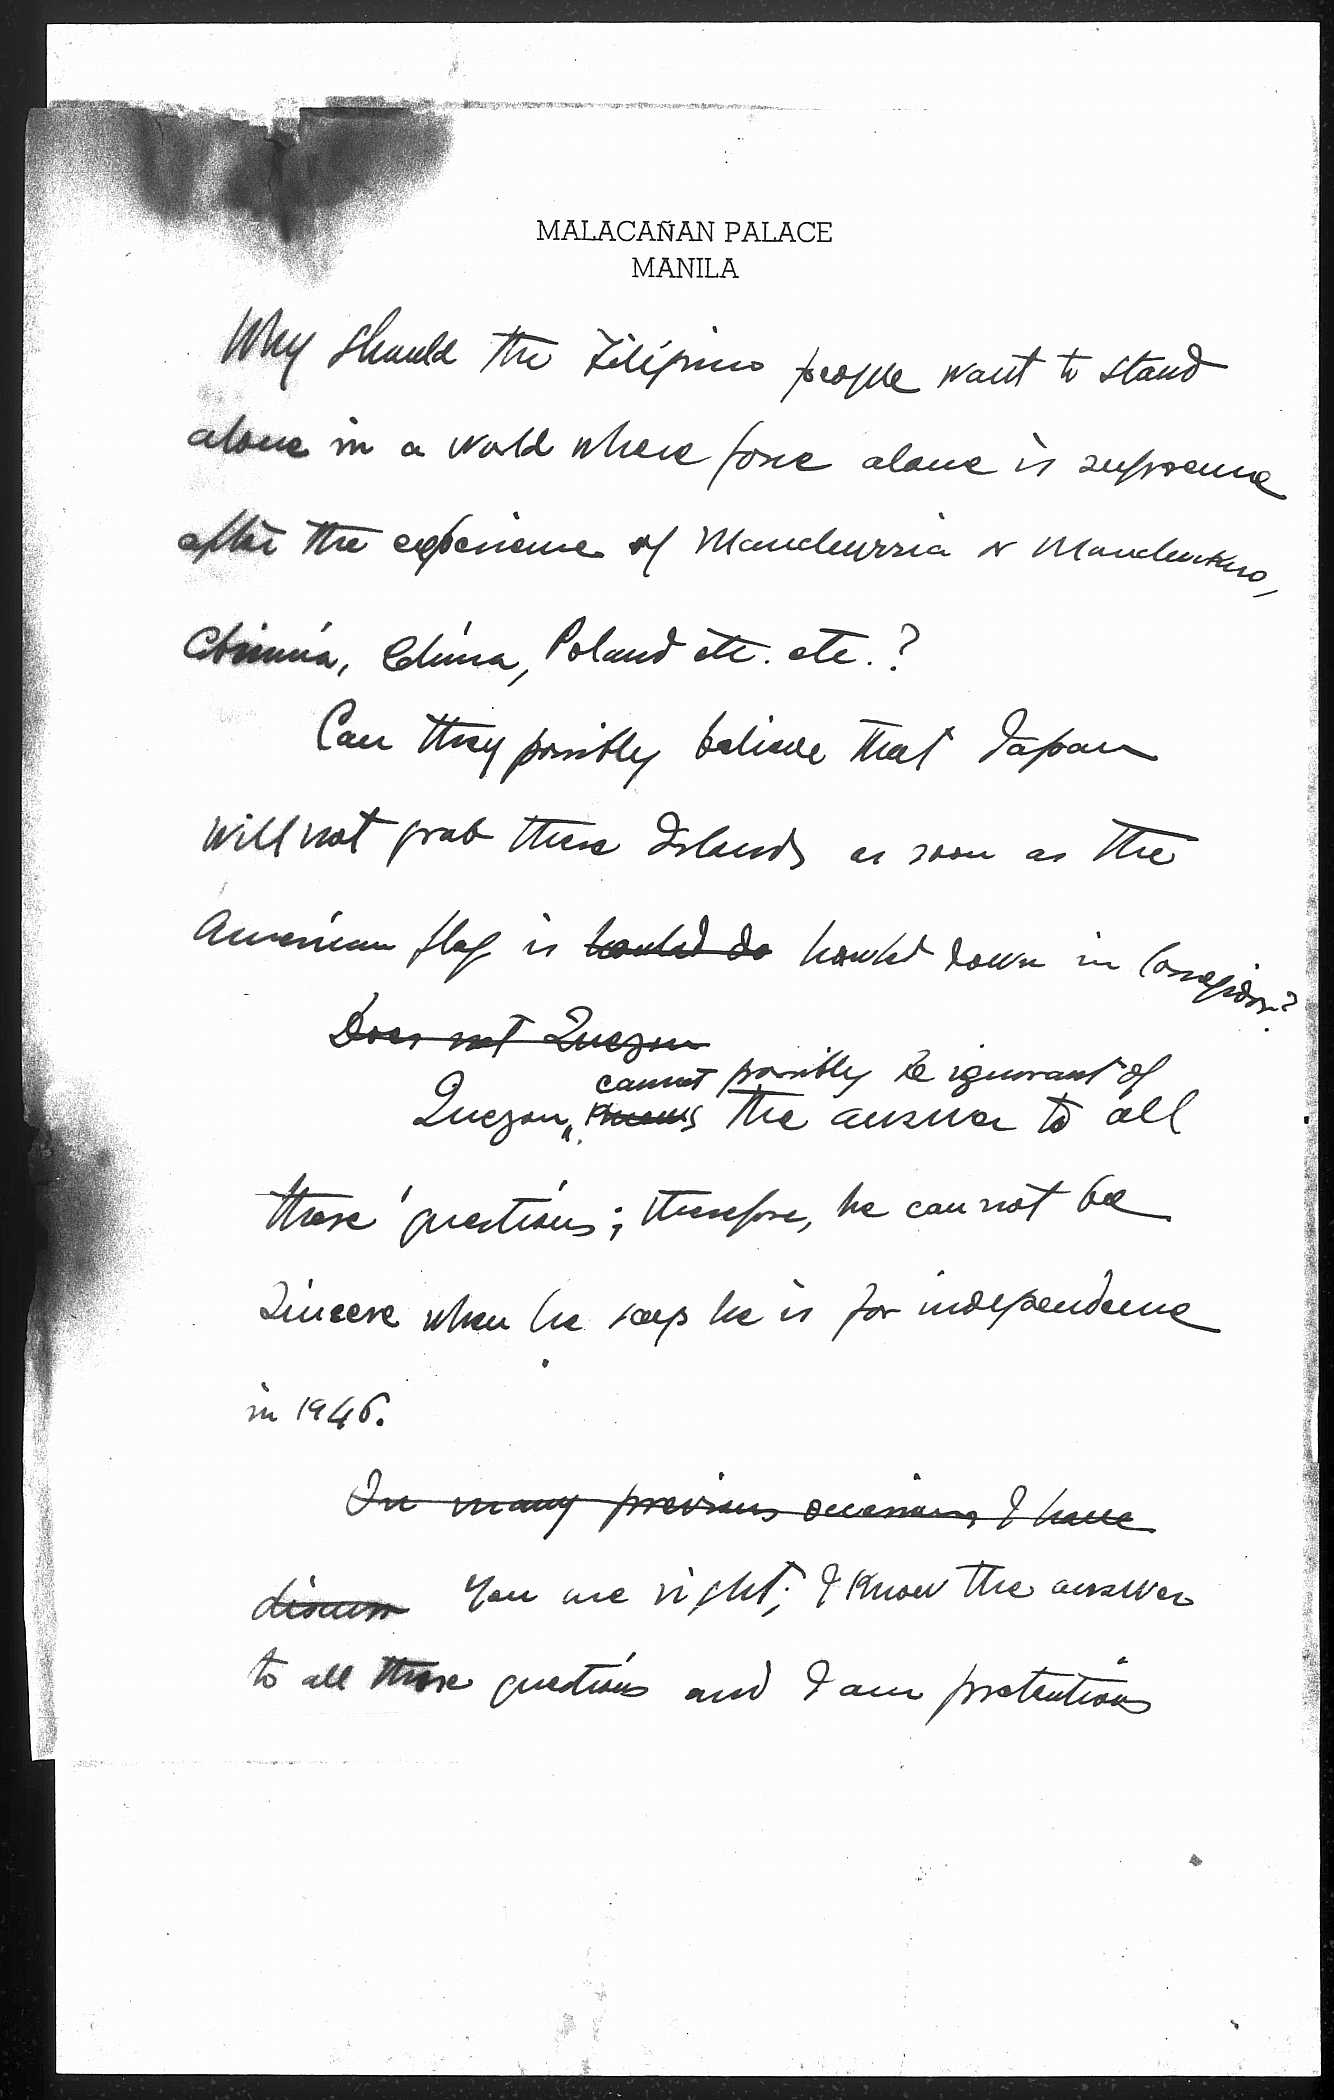 MALACAÑAN PALACE
MANILA
Why should the Filipino people want to stand
alone in a world where force alone is supreme
after the experience of Manchuria or Manchukuo,
China, Poland etc. etc.?
Can they possibly believe that Japan
will not grab these Islands as soon as the
American flag is hauled do hauled down in Corregidor?
Does not Quezon
cannot possibly be ignorant of
Quezon knows the answer to all
these questions; therefore, he cannot be
sincere when he says he is for independence
in 1946.
In many previous occasions I have
discuss You are right; I know the answer
to all these questions and I am pretentious